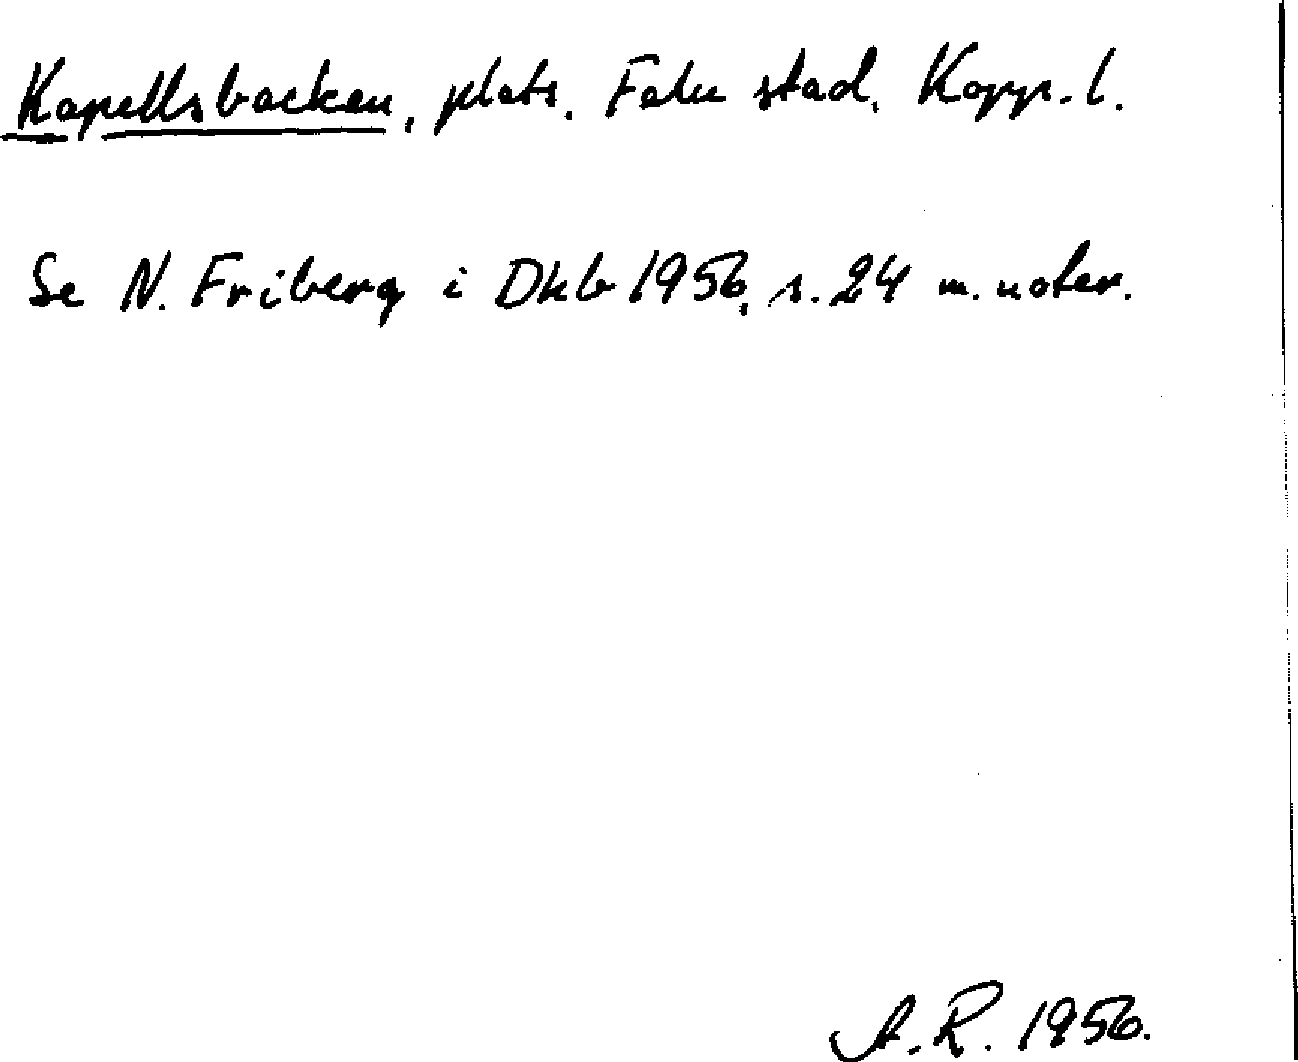 Kapellsbacken, plats, Falu stad, Kopp. l.
Se N. Friberg i Dhb 1956, s. 24 m. noter.
A. R. 1956.